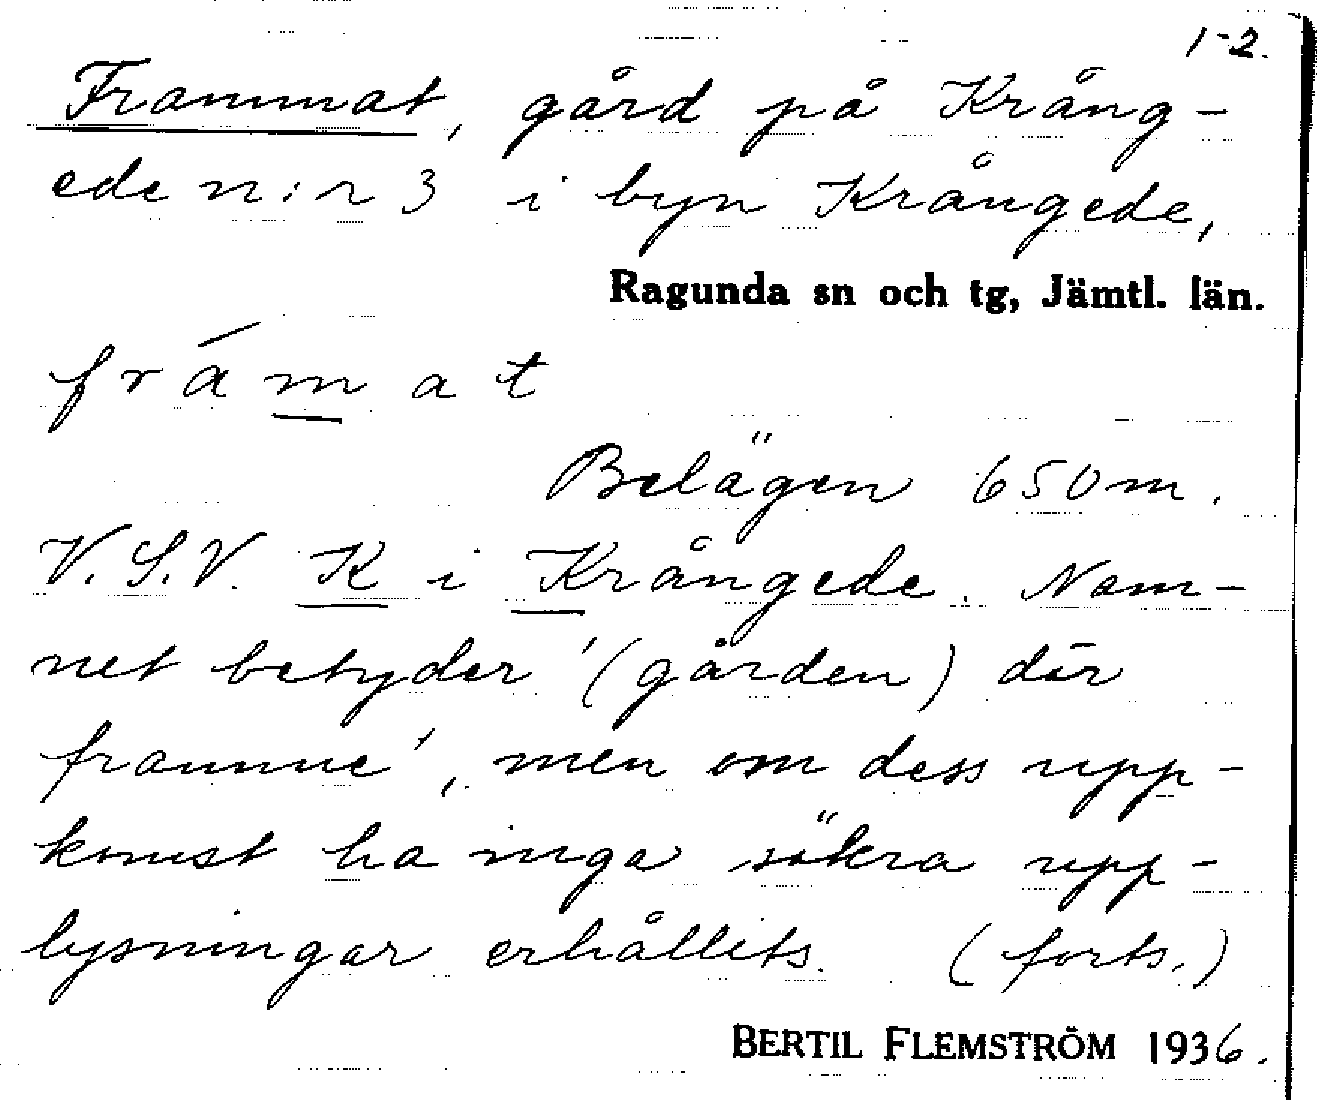 1-2.
Frammat, gård på Krång-
ede n:r 3 i byn Krångede,
Ragunda sn och tg, Jämtl. län.
frámat
Belägen 650 m.
V.S.V. K i Krångede. Nam-
net betyder '(gården) där
framme', men om dess upp-
komst ha inga säkra upp-
lysningar erhållits. (forts.)
BERTIL FLEMSTRÖM 1936.